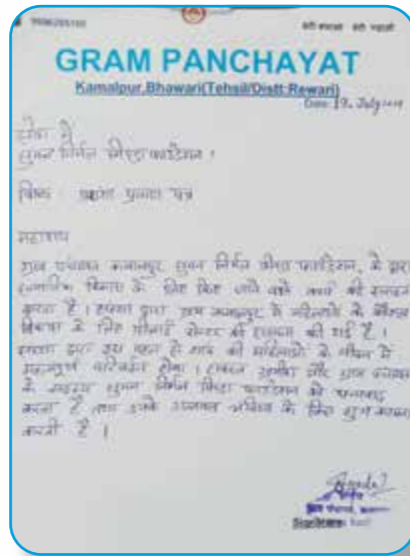 बेटी बचाओ बेटी पढ़ाओ
GRAM PANCHAYAT
Kamalpur,Bhawari(Tehsil/Distt:Rewari)
Date: 19. July
सेवा में
सुमन निर्मल मिंडा फाउंडेशन।
विषय - प्रशंसा पत्र
महाशय
ग्राम पंचायत कमालपुर सुमन निर्मल मिंडा फाउंडेशन, के द्वारा
सामाजिक विकास के लिए किए जाने वाले कार्य की सराहना
करता है। द्वारा ग्राम कमालपुर के महिलाओं के कौशल
विकास के लिए सिलाई सेन्टर की स्थापना की गई है।
द्वारा इस पहल से गांव की महिलाओं के जीवन में
महत्वपूर्ण परिवर्तन होगा। और ग्राम पंचायत
के सदस्य सुमन निर्मल मिंडा फाउंडेशन को धन्यवाद
करता है तथा उनके उज्जवल भविष्य के लिए शुभ कामना
करती है।